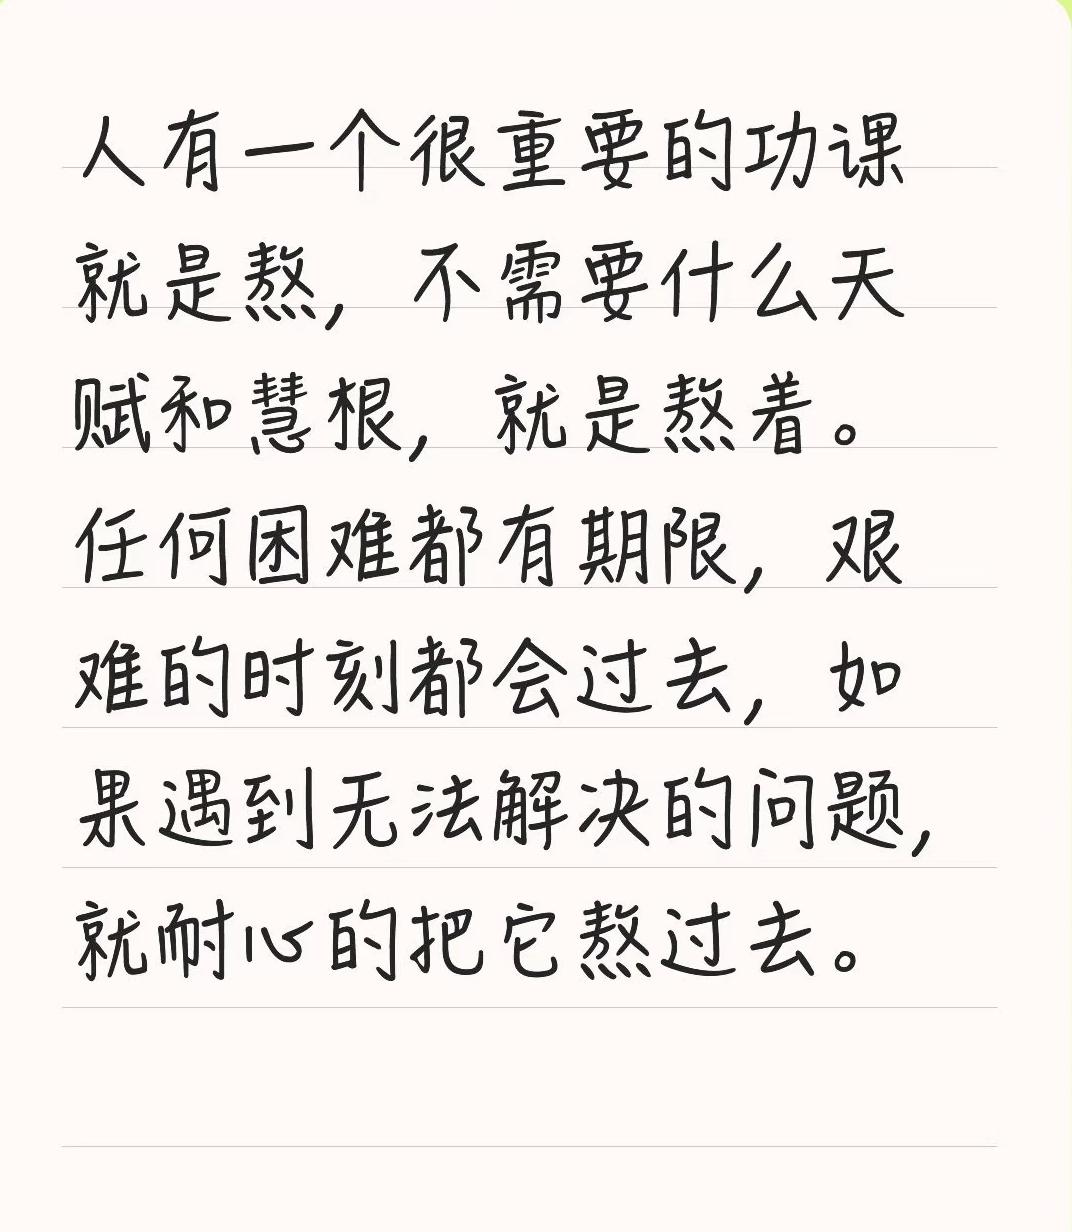 人有一个很重要的功课
就是熬，不需要什么天
赋和慧根，就是熬着。
任何困难都有期限，艰
难的时刻都会过去，如
果遇到无法解决的问题，
就耐心的把它熬过去。